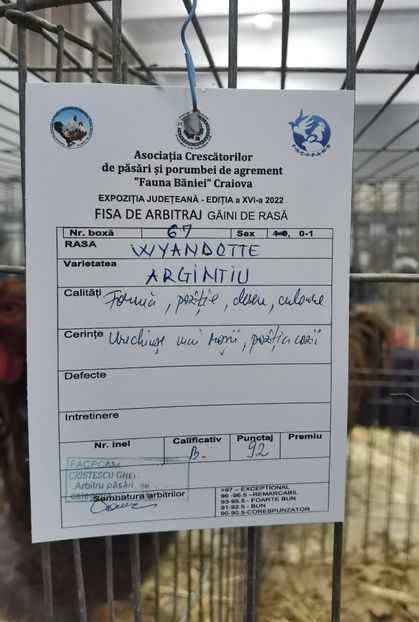 Asociația Crescătorilor
de păsări și porumbei de agrement
"Fauna Băniei" Craiova
EXPOZIȚIA JUDEȚEANĂ - EDIȚIA a XVI-a 2022
FISA DE ARBITRAJ GĂINI DE RASĂ
Nr. boxă 67 Sex 1-0, 0-1
RASA WYANDOTTE
Varietatea ARGINTIU
Calități Formă, poziție, desen, culoare
Cerințe Urechiușe mai roșii, poziția cozii
Defecte
Intretinere
Nr. inel Calificativ Punctaj Premiu
B. 92
CRISTESCU GHE.
Arbitru păsări
Semnatura arbitrilor
=97 – EXCEPTIONAL
96 -96.5 –REMARCABIL
93-95.5 - FOARTE BUN
91-92.5 - BUN
90-90.5-CORESPUNZATOR
F.N.C.P.P.A.M.R